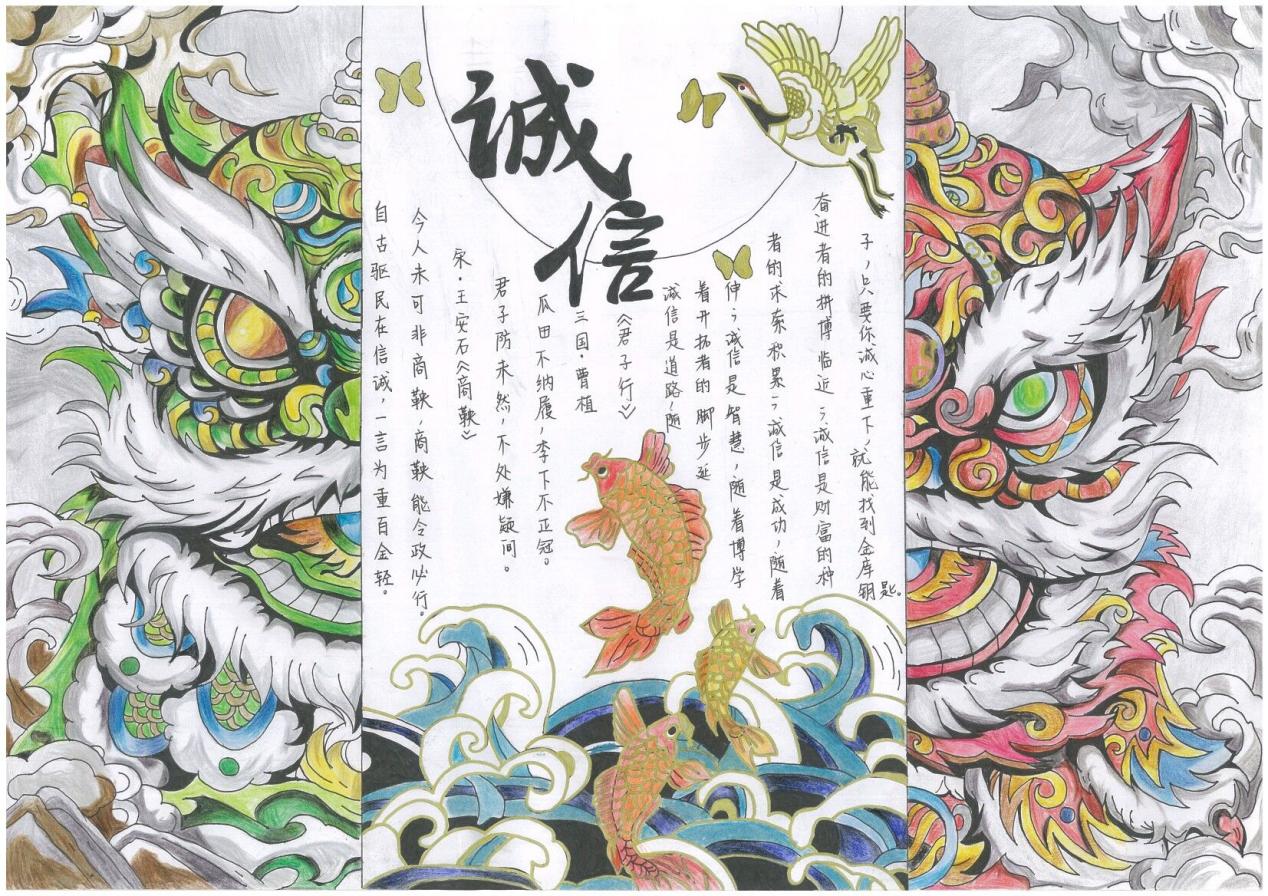 诚信
自古驱民在信诚，一言为重百金轻。
今人未可非商鞅，商鞅能令政必行。
宋·王安石《商鞅》
君子防未然，不处嫌疑间。
瓜田不纳履，李下不正冠。
三国·曹植
《君子行》
诚信是道路，随
着开拓者的脚步延
伸；诚信是智慧，随着博学
者的求索积累；诚信是成功，随着
奋进者的拼博临近；诚信是财富的种
子，只要你诚心重下，就能找到金库钥匙。